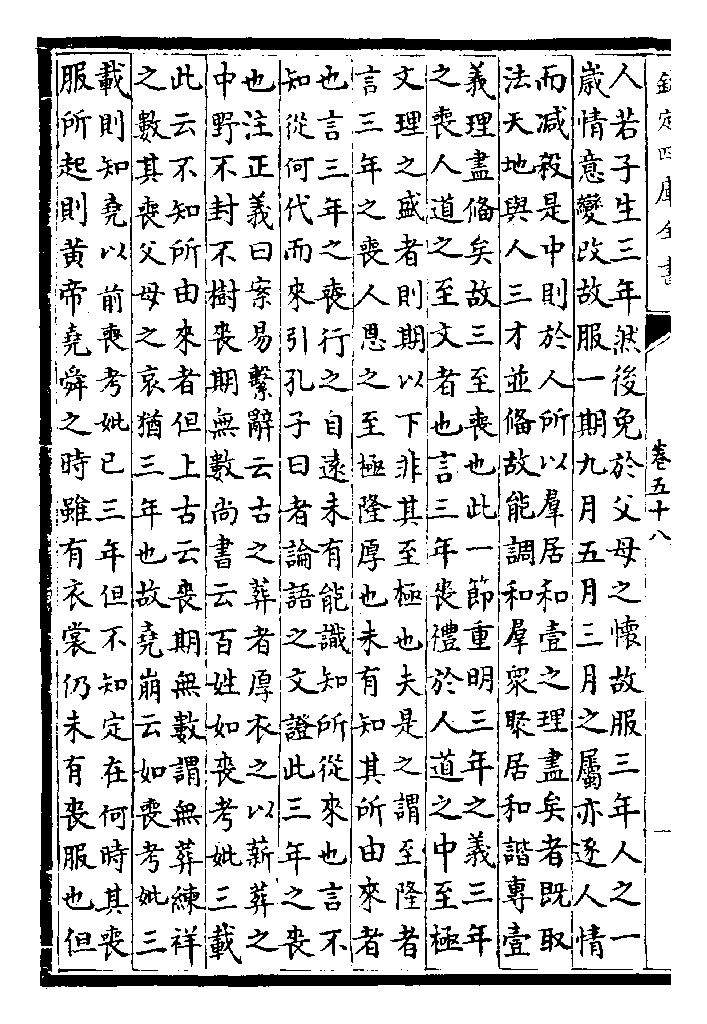 欽定四庫全書
卷五十八
一
人若子生三年然後免於父母之懷故服三年人之一
歲情意變改故服一期九月五月三月之屬亦逐人情
而减殺是中則於人所以羣居和壹之理盡矣者既取
法天地與人三才並備故能調和羣衆聚居和諧專壹
義理盡備矣故三至喪也此一節重明三年之義三年
之喪人道之至文者也言三年喪禮於人道之中至極
文理之盛者則期以下非其至極也夫是之謂至隆者
言三年之喪人恩之至極隆厚也未有知其所由來者
也言三年之喪行之自遠未有能識知所從來也言不
知從何代而來引孔子曰者論語之文證此三年之喪
也注正義曰案易繫辭云古之葬者厚衣之以薪葬之
中野不封不樹喪期無數尚書云百姓如喪考妣三載
此云不知所由來者但上古云喪期無數謂無葬練祥
之數其喪父母之哀猶三年也故堯崩云如喪考妣三
載則知堯以前喪考妣已三年但不知定在何時其喪
服所起則黄帝堯舜之時雖有衣裳仍未有喪服也但